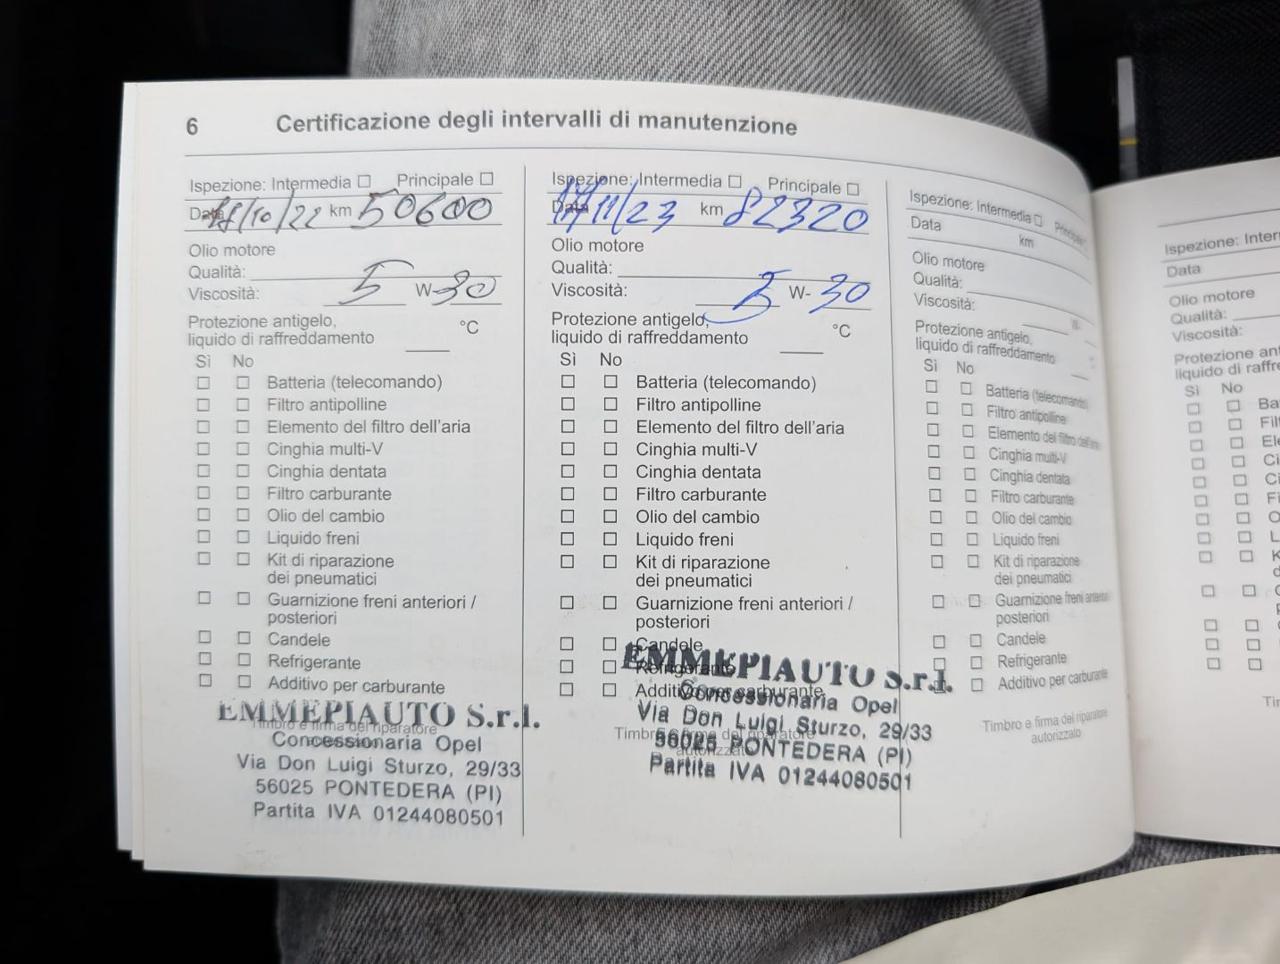 6 Certificazione degli intervalli di manutenzione
Ispezione: Intermedia ☐ Principale ☐
Data 18/10/22 km 50600
Olio motore
Qualità:
Viscosità: 5 W-30
Protezione antigelo, °C
liquido di raffreddamento
Sì No
☐ ☐ Batteria (telecomando)
☐ ☐ Filtro antipolline
☐ ☐ Elemento del filtro dell'aria
☐ ☐ Cinghia multi-V
☐ ☐ Cinghia dentata
☐ ☐ Filtro carburante
☐ ☐ Olio del cambio
☐ ☐ Liquido freni
☐ ☐ Kit di riparazione
dei pneumatici
☐ ☐ Guarnizione freni anteriori /
posteriori
☐ ☐ Candele
☐ ☐ Refrigerante
☐ ☐ Additivo per carburante
EMMEPIAUTO S.r.l.
Timbro e firma del riparatore
Concessionaria Opel
Via Don Luigi Sturzo, 29/33
56025 PONTEDERA (PI)
Partita IVA 01244080501
Ispezione: Intermedia ☐ Principale ☐
Data 17/11/23 km 82320
Olio motore
Qualità:
Viscosità: 5 W-30
Protezione antigelo, °C
liquido di raffreddamento
Sì No
☐ ☐ Batteria (telecomando)
☐ ☐ Filtro antipolline
☐ ☐ Elemento del filtro dell'aria
☐ ☐ Cinghia multi-V
☐ ☐ Cinghia dentata
☐ ☐ Filtro carburante
☐ ☐ Olio del cambio
☐ ☐ Liquido freni
☐ ☐ Kit di riparazione
dei pneumatici
☐ ☐ Guarnizione freni anteriori /
posteriori
☐ ☐ Candele
EMMEPIAUTO S.r.l.
☐ ☐ Refrigerante
☐ ☐ Additivo per carburante
Concessionaria Opel
Via Don Luigi Sturzo, 29/33
Timbro e firma del riparatore
56025 PONTEDERA (PI)
autorizzato
Partita IVA 01244080501
Ispezione: Intermedia ☐ Principale
Data km
Olio motore
Qualità:
Viscosità: W-
Protezione antigelo,
liquido di raffreddamento
Sì No
☐ ☐ Batteria (telecomando)
☐ ☐ Filtro antipolline
☐ ☐ Elemento del filtro dell'aria
☐ ☐ Cinghia multi-V
☐ ☐ Cinghia dentata
☐ ☐ Filtro carburante
☐ ☐ Olio del cambio
☐ ☐ Liquido freni
☐ ☐ Kit di riparazione
dei pneumatici
☐ ☐ Guarnizione freni anteriori
posteriori
☐ ☐ Candele
☐ ☐ Refrigerante
☐ ☐ Additivo per carburante
Timbro e firma del riparatore
autorizzato
Ispezione: Inter
Data
Olio motore
Qualità:
Viscosità:
Protezione an
liquido di raffre
Sì No
☐ ☐ Ba
☐ ☐ Fil
☐ ☐ Ele
☐ ☐ Ci
☐ ☐ Ci
☐ ☐ Fi
☐ ☐ O
☐ ☐ L
☐ ☐ K